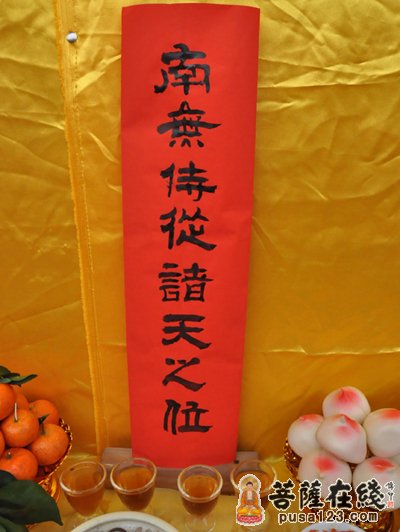 南無侍從諸天之位
菩薩在綫
pusa123.com